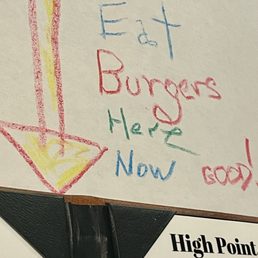 Eat
Burgers
Here
Now GOOD!
High Point